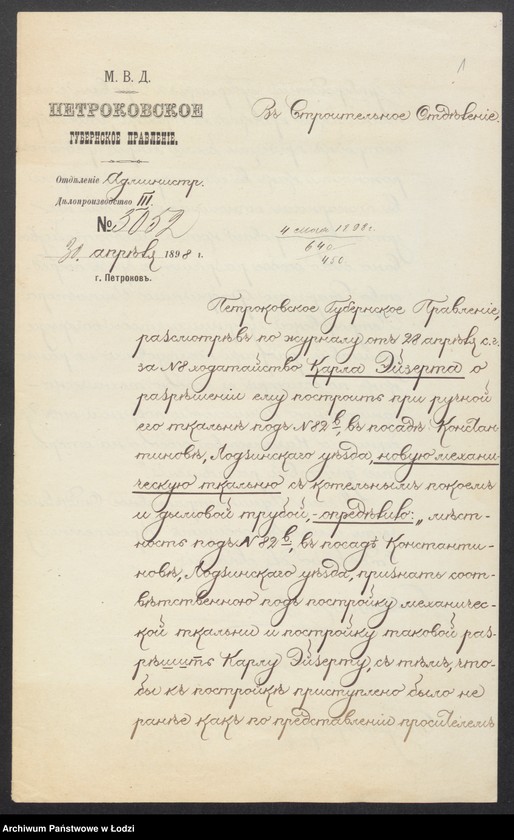 1
М. В. Д.
ПЕТРОКОВСКОЕ
ГУБЕРНСКОЕ ПРАВЛЕНІЕ.
Отдѣленіе Администр.
Дѣлопроизводство III.
№ 3052
30 апрѣля 1898 г.
г. Петроковъ.
Въ Строительное Отдѣленіе.
4 мая 1898 г.
640
450
Петроковское Губернское Правленіе,
разсмотрѣвъ по журналу отъ 28 апрѣля с.г.
за № 8 ходатайство Карла Эйзерта о
разрѣшеніи ему построить при ручной
его ткальнѣ подъ № 82 в, въ посадѣ Констан-
тиновѣ, Лодзинскаго уѣзда, новую механи-
ческую ткальню съ котельнымъ покоемъ
и дымовой трубой, - опредѣлило: „ мѣст-
ность подъ № 82 в, въ посадѣ Константи-
новѣ, Лодзинскаго уѣзда, признать соот-
вѣтственною подъ постройку механичес-
кой ткальни и постройку таковой раз-
рѣшить Карлу Эйзерту, съ тѣмъ, что-
бы къ постройкѣ приступлено было не
ранѣе какъ по представленіи просителемъ
Archiwum Państwowe w Łodzi